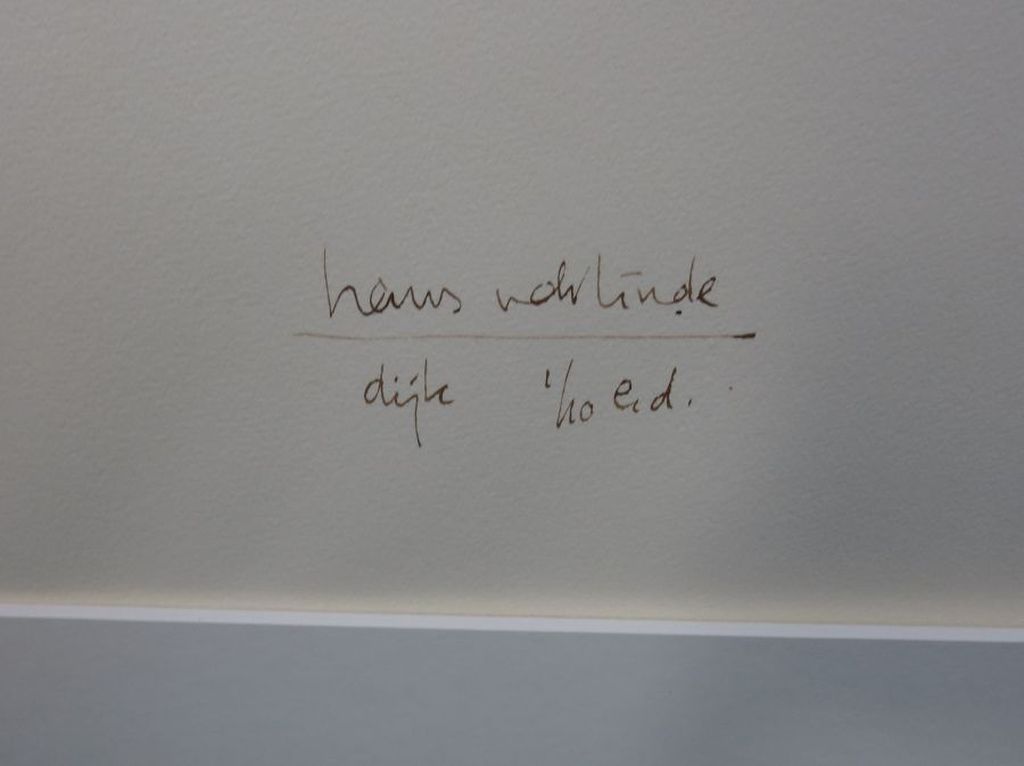 hans vdrlinde
dijk 1/10 e.d.